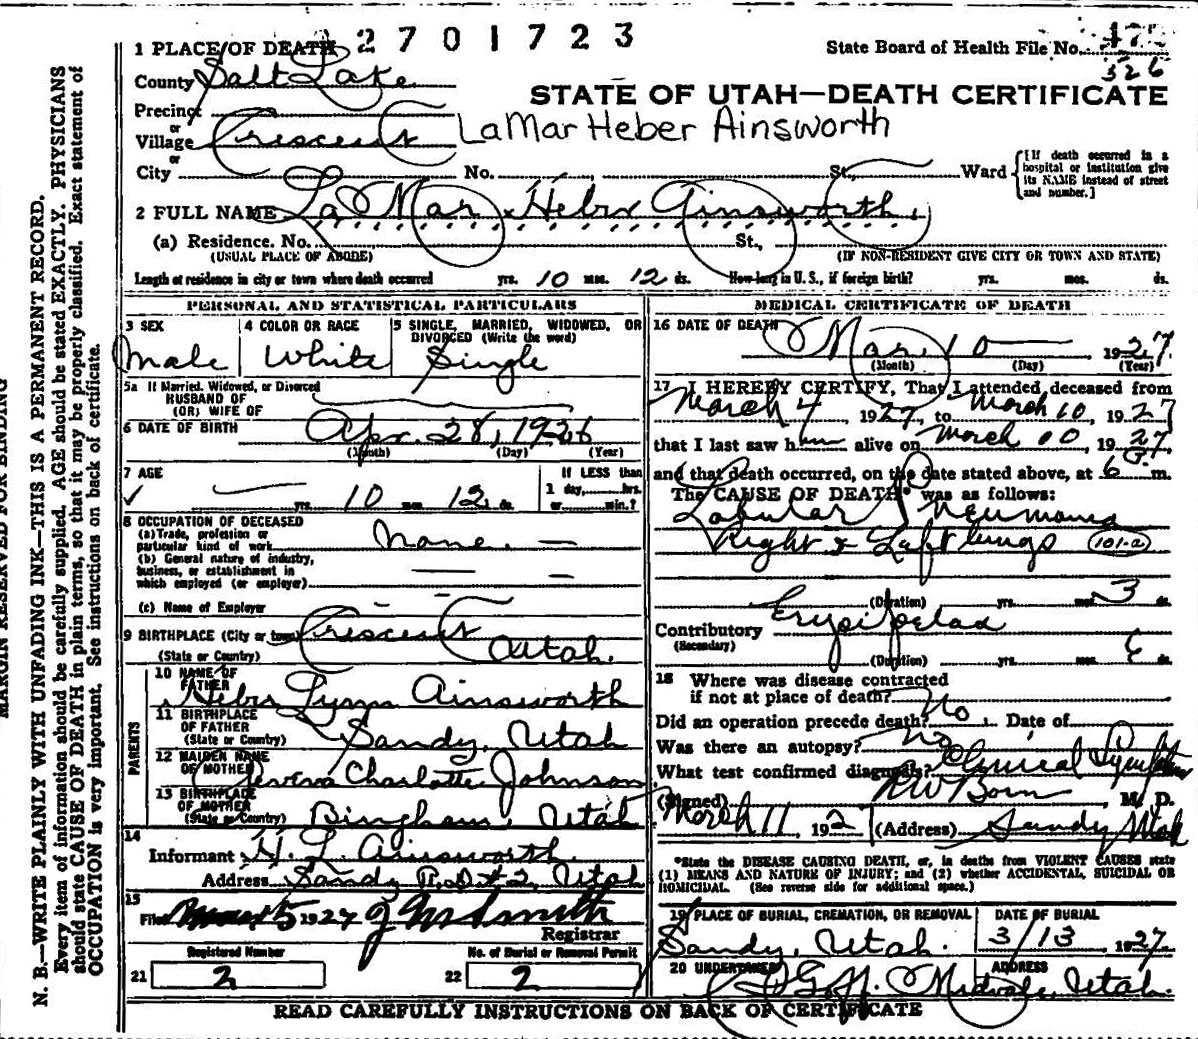 2701723
1 PLACE OF DEATH
State Board of Health File No.
County Salt Lake
326
STATE OF UTAH—DEATH CERTIFICATE
Precinct
or
Village Crescent
LaMar Heber Ainsworth
or
City No. St., Ward
[If death occurred in a hospital or institution give its NAME instead of street and number.]
2 FULL NAME La Mar Heber Ainsworth
(a) Residence. No. St.,
(USUAL PLACE OF ABODE) (IF NON-RESIDENT GIVE CITY OR TOWN AND STATE)
Length of residence in city or town where death occurred yrs. 10 mos. 12 ds. How long in U. S., if foreign birth? yrs. mos. ds.
PERSONAL AND STATISTICAL PARTICULARS
3 SEX 4 COLOR OR RACE 5 SINGLE, MARRIED, WIDOWED, OR DIVORCED (Write the word)
Male White Single
5a If Married, Widowed, or Divorced
HUSBAND OF
(OR) WIFE OF
6 DATE OF BIRTH Apr. 28, 1926
(Month) (Day) (Year)
7 AGE If LESS than
yrs. 10 mos. 12 ds. 1 day, hrs.
or min.?
8 OCCUPATION OF DECEASED
(a) Trade, profession or
particular kind of work None.
(b) General nature of industry,
business, or establishment in
which employed (or employer)
(c) Name of Employer
9 BIRTHPLACE (City or town) Crescent
(State or Country) Utah.
PARENTS
10 NAME OF FATHER Heber Lynn Ainsworth
11 BIRTHPLACE OF FATHER
(State or Country) Sandy, Utah
12 MAIDEN NAME OF MOTHER Charlotte Johnson
13 BIRTHPLACE OF MOTHER
(State or Country) Bingham, Utah
14
Informant H. L. Ainsworth
Address Sandy R.D. #2, Utah
15
Filed 5 1927 Smith
Registrar
Registered Number No. of Burial or Removal Permit
21 2 22 2
MEDICAL CERTIFICATE OF DEATH
16 DATE OF DEATH
Mar. 10 1927
(Month) (Day) (Year)
17 I HEREBY CERTIFY, That I attended deceased from
March 4, 1927, to March 10, 1927
that I last saw him alive on March 10, 1927
and that death occurred, on the date stated above, at 6 P. m.
The CAUSE OF DEATH* was as follows:
Lobular Pneumonia
Right & Left lungs (101-a)
(Duration) yrs. mos. 3 ds.
Contributory Erysipelas
(Secondary)
(Duration) yrs. mos. 6 ds.
18 Where was disease contracted
if not at place of death?
Did an operation precede death? No. Date of
Was there an autopsy? No
What test confirmed diagnosis? Clinical Symptoms
(Signed) M. D.
March 11, 192 (Address) Sandy Utah
*State the DISEASE CAUSING DEATH, or, in deaths from VIOLENT CAUSES state
(1) MEANS AND NATURE OF INJURY; and (2) whether ACCIDENTAL, SUICIDAL OR
HOMICIDAL. (See reverse side for additional space.)
19 PLACE OF BURIAL, CREMATION, OR REMOVAL DATE OF BURIAL
Sandy, Utah. 3/13, 1927.
20 UNDERTAKER ADDRESS
Goff. Midvale, Utah.
READ CAREFULLY INSTRUCTIONS ON BACK OF CERTIFICATE
MARGIN RESERVED FOR BINDING
N. B.—WRITE PLAINLY WITH UNFADING INK—THIS IS A PERMANENT RECORD.
Every item of information should be carefully supplied. AGE should be stated EXACTLY. PHYSICIANS
should state CAUSE OF DEATH in plain terms, so that it may be properly classified. Exact statement of
OCCUPATION is very important. See instructions on back of certificate.